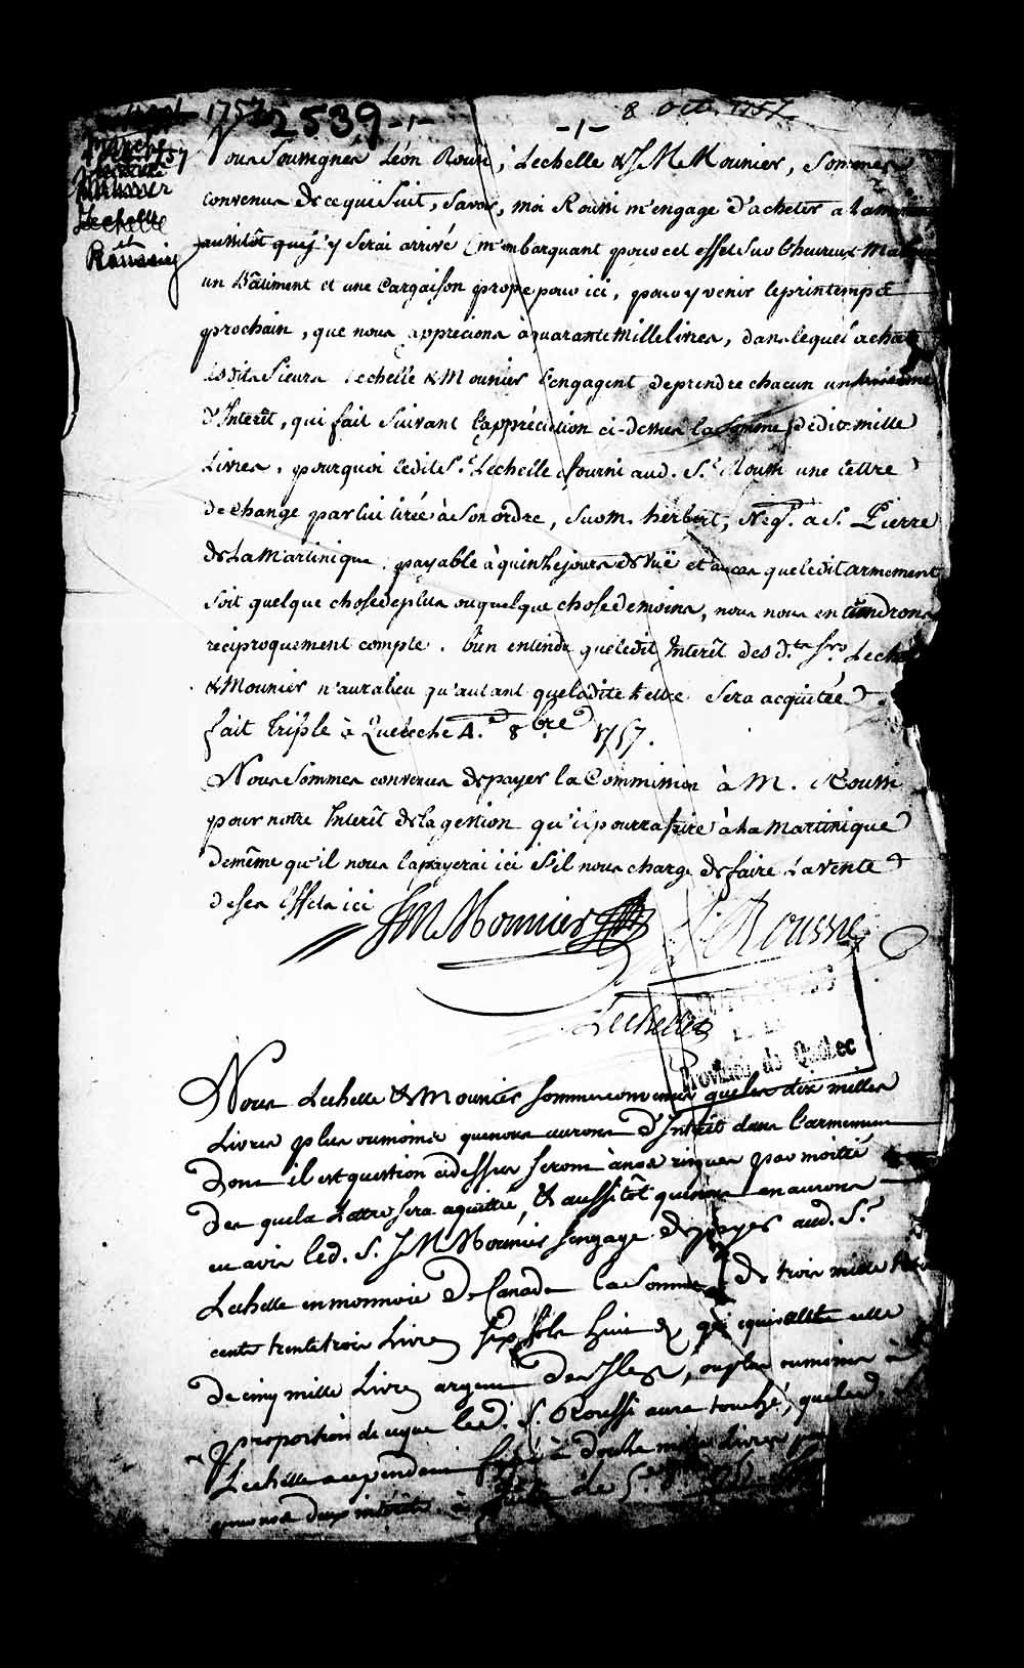 1757 2539 -1- -1- 8 Oct. 1757
Marché
1757
Mounier
Lechelle
et
Roussy
Nous Soussignés Léon Roussi, Lechelle & J M Mounier, Sommes
convenus de ce qui Suit, Savoir, moi Roussi m'engage d'acheter a La
aussitôt que j'y Serai arrivé (m'embarquant pour cet effet Sur L'heureux
un Bâtiment et une Cargaison propre pour ici, pour y venir le printemps
prochain, que nous apprecions à quarante mille livres, dans lequel achat
lesdits Sieurs Lechelle & Mounier S'engagent de prendre chacun un huitieme
d'Interêt, qui fait Suivant l'appréciation ci-dessus la Somme de dix mille
Livres, pourquoi ledit S.r Lechelle fourni aud. S.r Roussi une Lettre
de change par lui tirée à Son ordre, Sur m. herbert, Neg.t a S. Pierre
de La Martinique, payable à quinze jours de Vüe et au cas que ledit armement
Soit quelque chose de plus ou quelque chose de moins, nous nous en tiendrons
reciproquement compte. bien entendu que ledit Interêt des d.ts Srs Lechelle
& Mounier n'aura lieu qu'autant que ladite Lettre Sera acquitée
fait Triple à Quebec he 4.e 8.bre 1757.
Nous Sommes convenus de payer la Commission à M. Roussi
pour notre Interêt de la gestion qu'il pourra faire à La Martinique
de même qu'il nous la payerai ici S'il nous charge de faire La vente
de Ses Effets ici J M Mounier L. Roussi
Lechelle
Province de Québec
Nous Lechelle & Mounier Sommes convenus que les dix milles
Livres plus ou moins que nous aurons d'Intrêt dans l'armement
Dont il est question cidessus Seront à nos risques par moitié
Des que la Lettre Sera aquittée, & aussitôt que nous en aurons
eu avis led. S. J M Mounier S'engage de payer aud. S.r
Lechelle en monnoie de Canada la Somme de trois mille
cents trente trois Livres Six Sols huit d. qui équivallte celle
De cinq mille Livres argent des Isles, ou plus ou moins à
Proportion de ceque led. S. Roussi aura touché, que led
Lechelle a cependant fixé à douze mille Livres